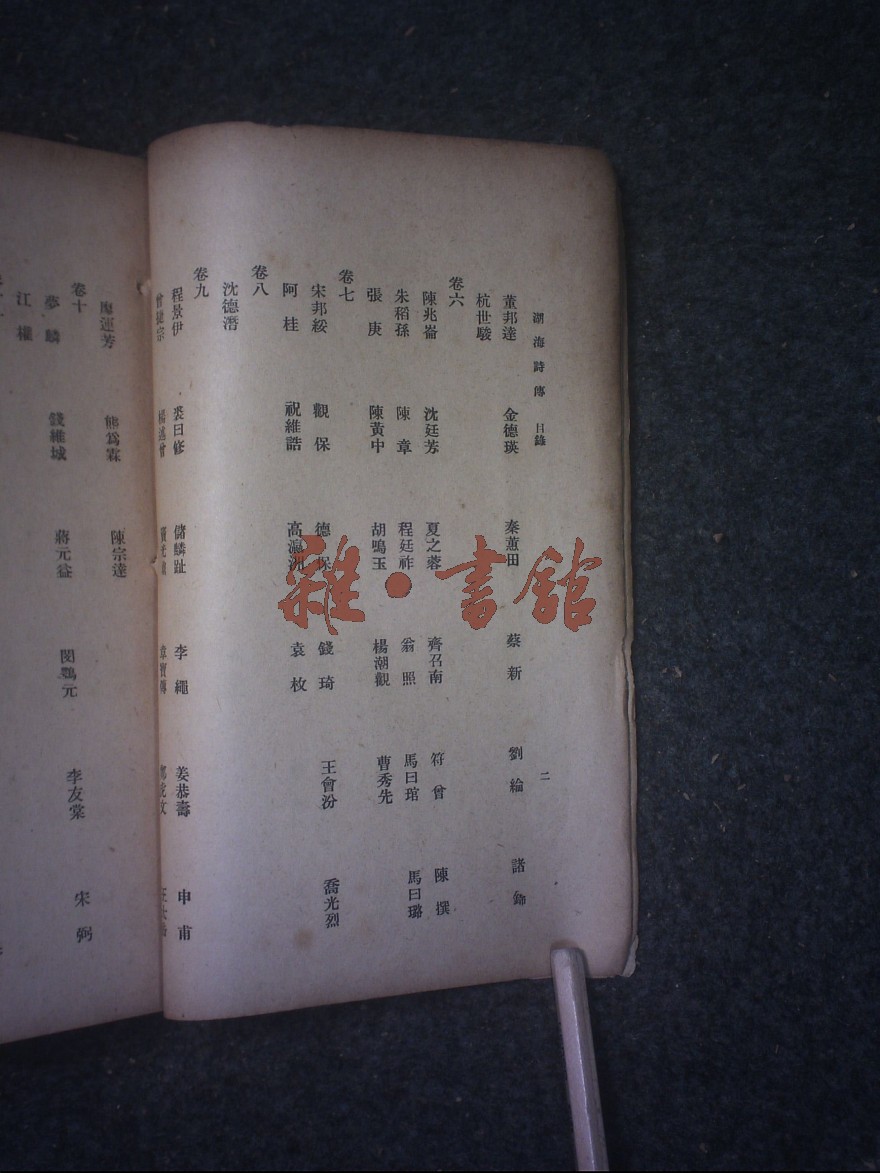 湖海詩傳 目錄 二
董邦達 金德瑛 秦蕙田 蔡新 劉綸 諸錦
杭世駿
卷六
陳兆崙 沈廷芳 夏之蓉 齊召南 符曾 陳撰
朱稻孫 陳章 程廷祚 翁照 馬曰琯 馬曰璐
張庚 陳黃中 胡鳴玉 楊潮觀 曹秀先
卷七
宋邦綏 觀保 德保 錢琦 王會汾 喬光烈
阿桂 祝維誥 高瀛洲 袁枚
卷八
沈德潛
卷九
程景伊 裘曰修 儲麟趾 李繩 姜恭壽 申甫
廖運芳 熊爲霖 陳宗達
卷十
夢麟 錢維城 蔣元益 閔鶚元 李友棠 宋弼
江權
雜·書館